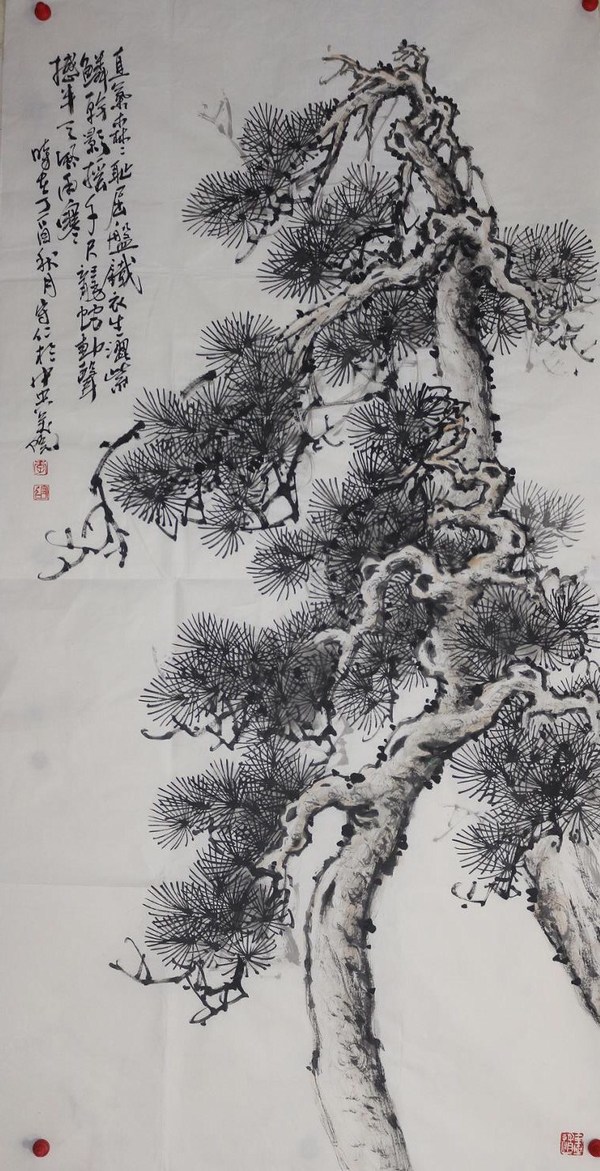 直氣森〻耻屈盤鐵衣生澀紫
鱗乾影搖千尺龍蛇動聲
撼半天風雨寒
時在丁酉秋月守仁於中央美院